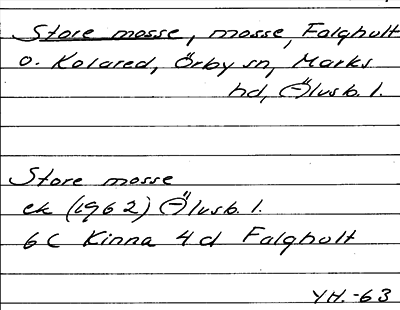 Store mosse, mosse, Falghult
o. Kolared, Örby sn, Marks
hd, Älvsb. l.
Store mosse
ek (1962) Älvsb. l.
6C Kinna 4d Falghult
YH.-63